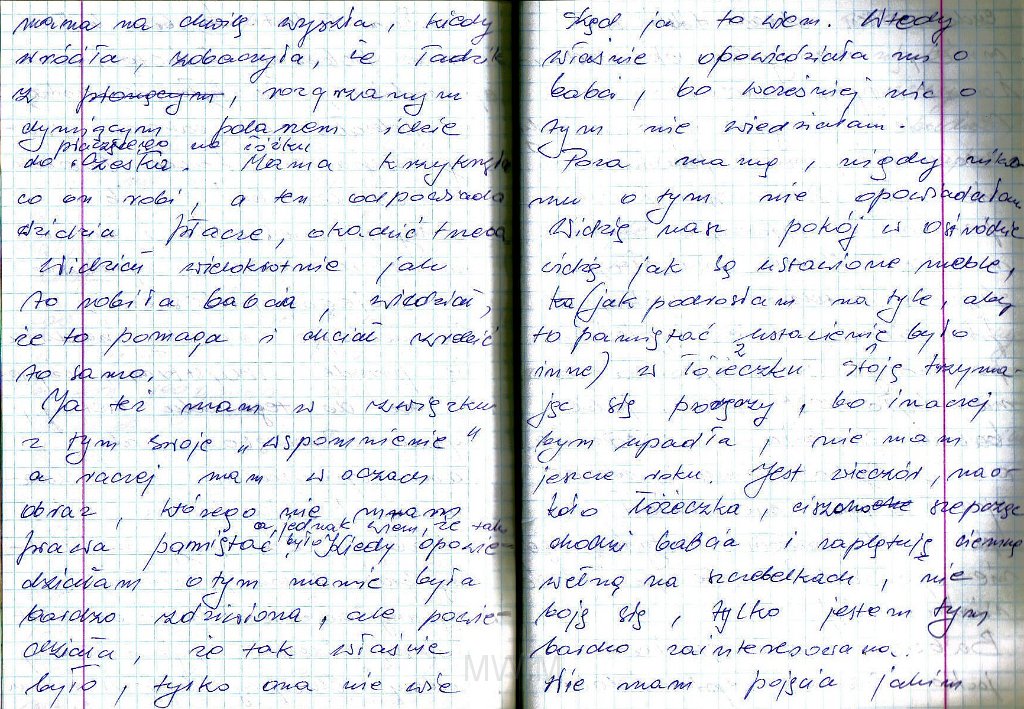 mama na chwilę wyszła, kiedy
wróciła, zobaczyła, że Tadzik
z płonącym, rozgrzanym
dymiącym polanem idzie
płaczącego w łóżku
do Cześka. Mama krzyknęła
co on robi, a ten odpowiada
dzidzia płacze, okadzić trzeba
Widział wielokrotnie jak
to robiła babcia, wiedział,
że to pomaga i chciał zrobić
to samo.
Ja też mam w związku
z tym swoje „wspomnienie"
a raczej mam w oczach
obraz, którego nie mam
a jednak wiem, że tak
prawa pamiętać było. Kiedy opowie-
działam o tym mamie była
bardzo zdziwiona, ale powie-
działa, że tak właśnie
było, tylko ona nie wie
Skąd ja to wiem. Wtedy
właśnie opowiedziała mi o
babci, bo wcześniej nic o
tym nie wiedziałam.
Poza mamą, nigdy niko
mu o tym nie opowiadałam
Widzę nasz pokój w Ostródzie
widzę jak są ustawione meble,
(jak podrosłam na tyle, aby
to pamiętać ustawienie było
inne) w łóżeczku stoję trzyma-
jąc się poręczy, bo inaczej
bym upadła, nie mam
jeszcze roku. Jest wieczór, nao-
koło łóżeczka, szepcząc
chodzi babcia i zaplątuję ciemną
wełnę na szczebelkach, nie
boję się, tylko jestem tym
bardzo zainteresowana.
Nie mam pojęcia jakim
MWM